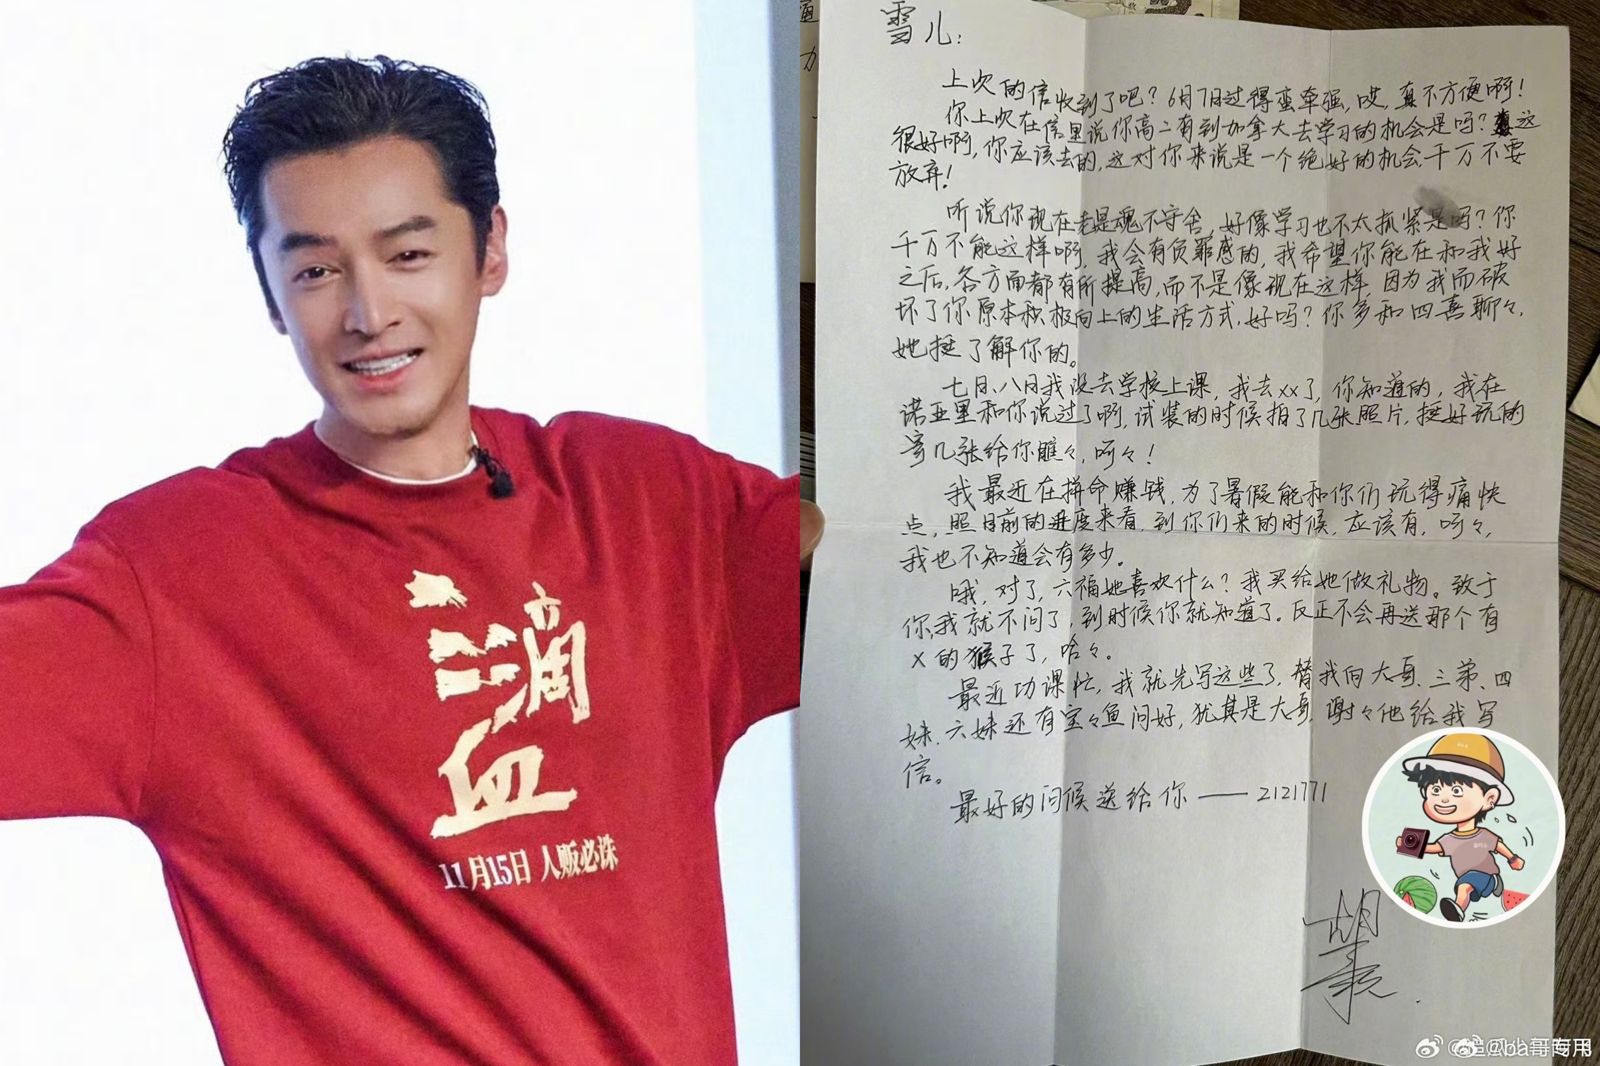 一滴血
11月15日 人贩必诛
雪儿：
上次的信收到了吧？6月7日过得蛮牵强，哎，真不方便啊！
你上次在信里说你高二有到加拿大去学习的机会是吗？这
很好啊，你应该去的，这对你来说是一个绝好的机会千万不要
放弃！
听说你现在老是魂不守舍，好像学习也不太抓紧是吗？你
千万不能这样啊，我会有负罪感的，我希望你能在和我好
之后，各方面都有所提高，而不是像现在这样，因为我而破
坏了你原本积极向上的生活方式，好吗？你多和四喜聊々，
她挺了解你的。
七月、八月我没去学校上课，我去xx了，你知道的，我在
诺亚里和你说过了啊，试装的时候拍了几张照片，挺好玩的
寄几张给你瞧々，呵々！
我最近在拼命赚钱，为了暑假能和你们玩得痛快
点，照目前的进度来看，到你们来的时候，应该有，呵々，
我也不知道会有多少。
哦，对了，六福她喜欢什么？我买给她做礼物。致于
你，我就不问了，到时候你就知道了。反正不会再送那个有
X的猴子了，哈々。
最近功课忙，我就先写这些了，替我向大哥、三弟、四
妹、六妹还有宝々鱼问好，犹其是大哥，谢々他给我写
信。
最好的问候送给你——2121771
胡